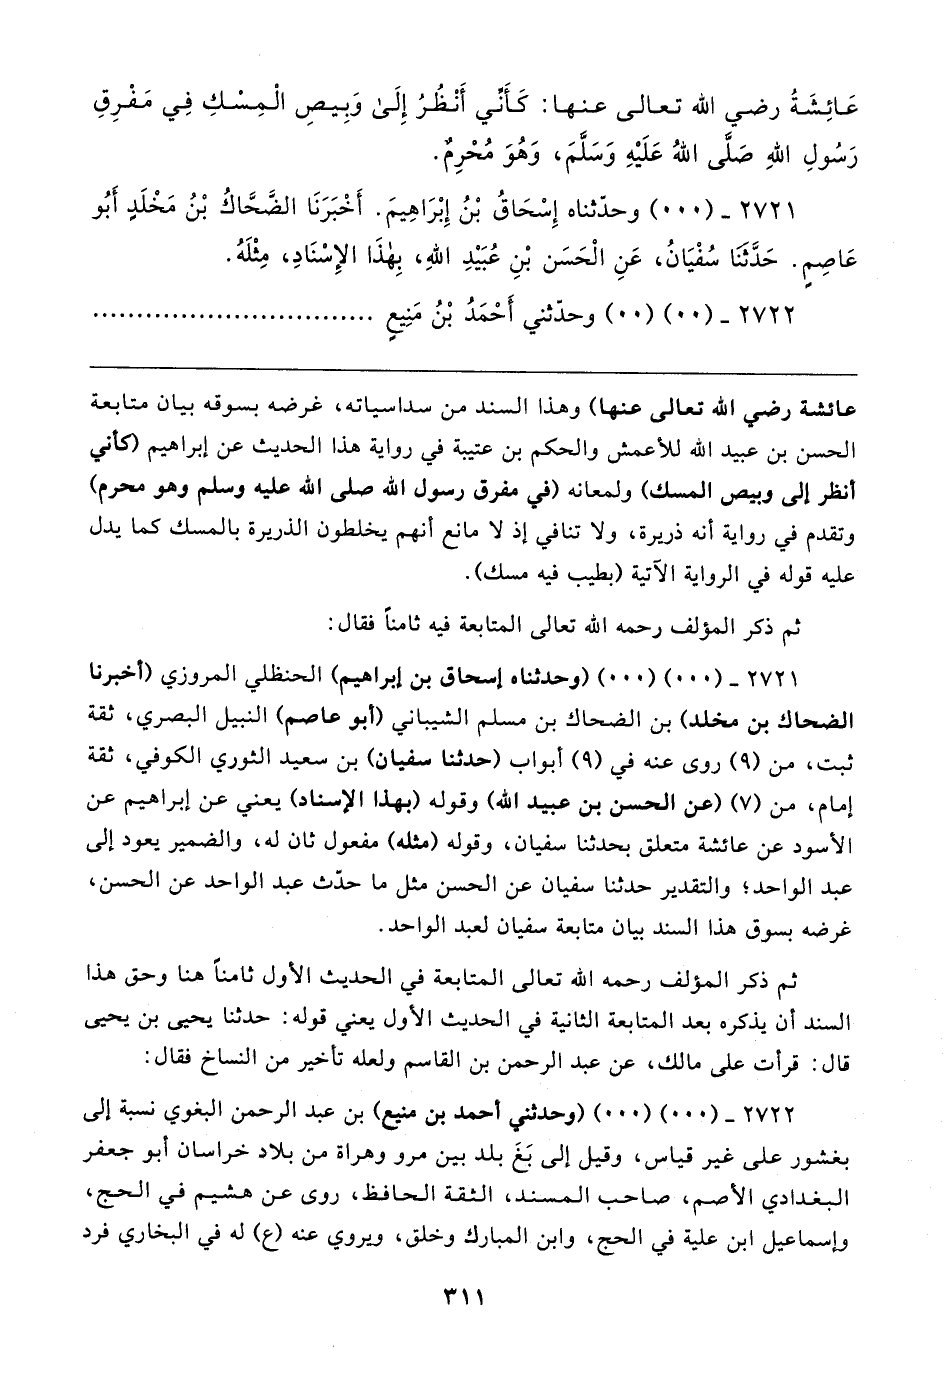 عَائِشَةُ رضي الله تعالى عنها: كَأَنِّي أَنْظُرُ إِلَىٰ وَبِيصِ الْمِسْكِ فِي مَفْرِقِ
رَسُولِ اللهِ صَلَّى اللهُ عَلَيْهِ وَسَلَّمَ، وَهُوَ مُحْرِمٌ.
٢٧٢١ ـ (٠٠٠) وحدّثناه إِسْحَاقُ بْنُ إِبْرَاهِيمَ. أَخْبَرَنَا الضَّحَّاكُ بْنُ مَخْلَدٍ أَبُو
عَاصِمٍ. حَدَّثَنَا سُفْيَانُ، عَنِ الْحَسَنِ بْنِ عُبَيْدِ اللهِ، بِهٰذَا الإِسْنَادِ، مِثْلَهُ.
٢٧٢٢ ـ (٠٠) (٠٠) وحدّثني أَحْمَدُ بْنُ مَنِيعٍ ...............................
عائشة رضي الله تعالى عنها) وهذا السند من سداسياته، غرضه بسوقه بيان متابعة
الحسن بن عبيد الله للأعمش والحكم بن عتيبة في رواية هذا الحديث عن إبراهيم (كأني
أنظر إلى وبيص المسك) ولمعانه (في مفرق رسول الله صلى الله عليه وسلم وهو محرم)
وتقدم في رواية أنه ذريرة، ولا تنافي إذ لا مانع أنهم يخلطون الذريرة بالمسك كما يدل
عليه قوله في الرواية الآتية (بطيب فيه مسك).
ثم ذكر المؤلف رحمه الله تعالى المتابعة فيه ثامناً فقال:
٢٧٢١ ـ (٠٠٠) (٠٠٠) (وحدثناه إسحاق بن إبراهيم) الحنظلي المروزي (أخبرنا
الضحاك بن مخلد) بن الضحاك بن مسلم الشيباني (أبو عاصم) النبيل البصري، ثقة
ثبت، من (٩) روى عنه في (٩) أبواب (حدثنا سفيان) بن سعيد الثوري الكوفي، ثقة
إمام، من (٧) (عن الحسن بن عبيد الله) وقوله (بهذا الإسناد) يعني عن إبراهيم عن
الأسود عن عائشة متعلق بحدثنا سفيان، وقوله (مثله) مفعول ثان له، والضمير يعود إلى
عبد الواحد؛ والتقدير حدثنا سفيان عن الحسن مثل ما حدّث عبد الواحد عن الحسن،
غرضه بسوق هذا السند بيان متابعة سفيان لعبد الواحد.
ثم ذكر المؤلف رحمه الله تعالى المتابعة في الحديث الأول ثامناً هنا وحق هذا
السند أن يذكره بعد المتابعة الثانية في الحديث الأول يعني قوله: حدثنا يحيى بن يحيى
قال: قرأت على مالك، عن عبد الرحمن بن القاسم ولعله تأخير من النساخ فقال:
٢٧٢٢ ـ (٠٠٠) (٠٠٠) (وحدثني أحمد بن منيع) بن عبد الرحمن البغوي نسبة إلى
بغشور على غير قياس، وقيل إلى بَغَ بلد بين مرو وهراة من بلاد خراسان أبو جعفر
البغدادي الأصم، صاحب المسند، الثقة الحافظ، روى عن هشيم في الحج،
وإسماعيل ابن علية في الحج، وابن المبارك وخلق، ويروي عنه (ع) له في البخاري فرد
٣١١